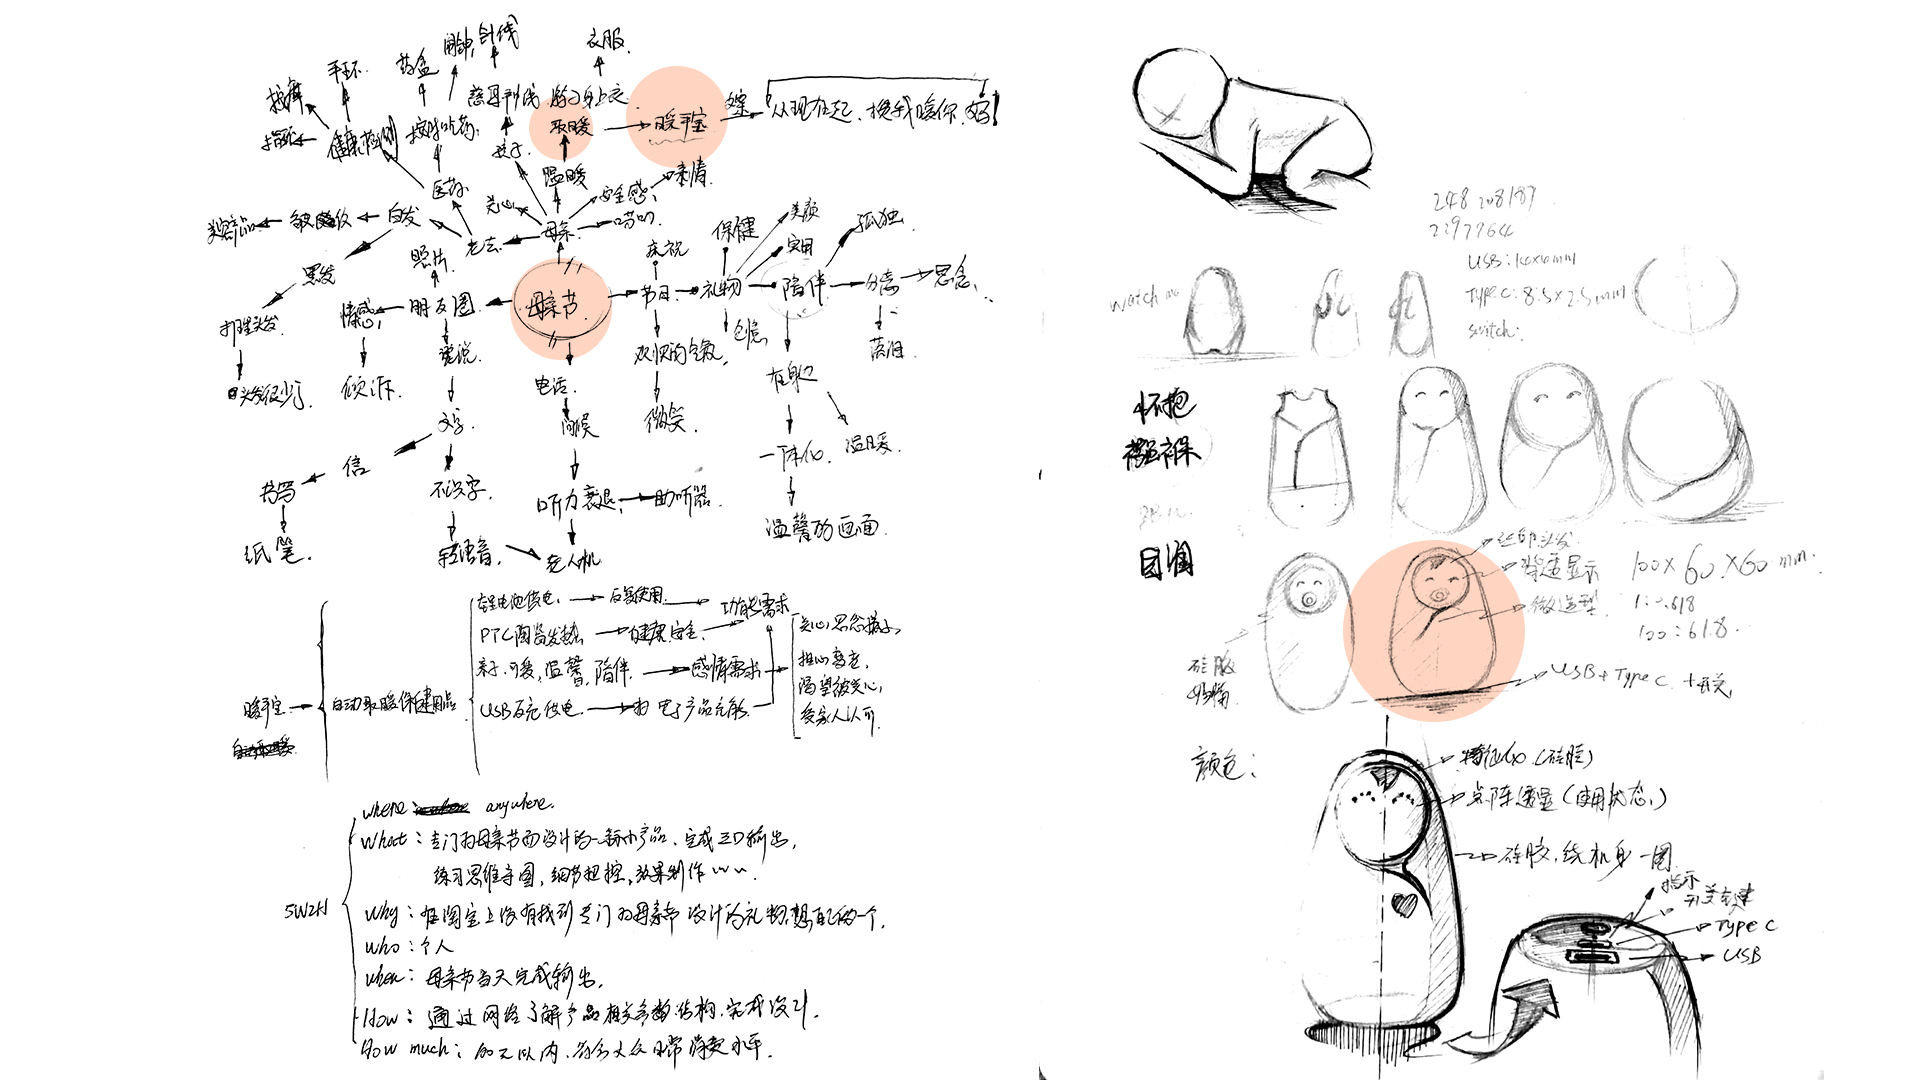 闹钟
针线
衣服
药盒
手环
按摩
慈母手线
游子身上衣
取暖
暖手宝
文案
从现在起,换我暖你,妈!
健康检测
按时吃药
孩子
温暖
亲情
医药
关心
安全感
唠叨
白发
母亲
老去
黑发
照片
庆祝
保健
美颜
实用
孤独
情感
朋友圈
母亲节
节日
礼物
陪伴
分享
思念
打理头发
倾诉
说说
电话
问候
欢快的气氛
微笑
在身边
落泪
头发很少了
文字
信
一体化
温暖
书写
不识字
听力衰退
助听器
纸笔
转语音
老人机
温馨的画面
锂电池供电
后备使用
功能需求
PTC陶瓷发热
健康.安全
亲子.可爱,温馨,陪伴
感情需求
USB 供电
电子产品充能
渴望被关心,
受家人认可
暖手宝
自动取暖保健用品
5W2H
where: anywhere.
What:专门为母亲节而设计的一款小产品,完成3D输出,
练习思维导图,细节把控,效果制作
Why:在淘宝上没有找到专门为母亲节设计的礼物,想自己做一个.
Who:个人
when:母亲节当天完成输出.
How:通过网络了解产品相关参数.结构,完成设计.
How much:100元以内,符合大众日常消费水平.
248 208187
2297764
USB:14x6mm
Type C:8.5×2.5mm
switch:
watch
怀抱
襁褓
圆润
丝印头发
微造型
100×60×60 mm
1:0.618
100:61.8
硅胶
USB+Type C+开关
颜色:
特征化(硅胶)
点阵透显(使用状态)
硅胶,绕机身一圈
指示
开关按键
Type C
USB